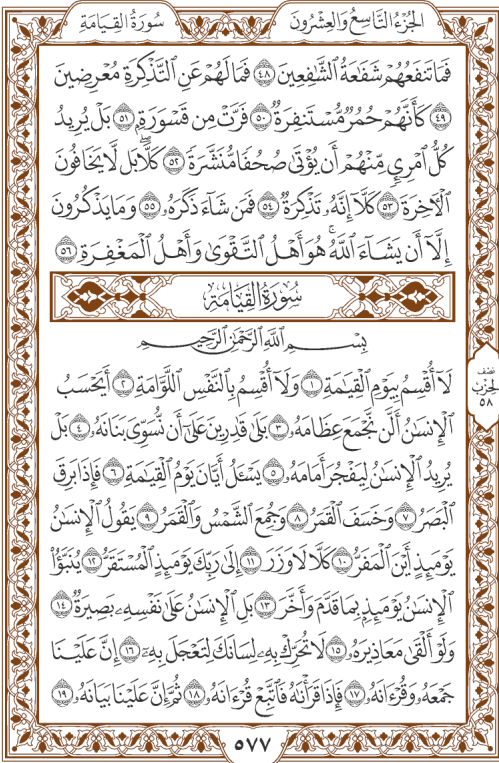 سُورَةُ القِيَامَةِ الجُزْءُ التَّاسِعُ وَالعِشْرُونَ
فَمَا تَنفَعُهُمْ شَفَٰعَةُ ٱلشَّٰفِعِينَ ٤٨ فَمَا لَهُمْ عَنِ ٱلتَّذْكِرَةِ مُعْرِضِينَ
٤٩ كَأَنَّهُمْ حُمُرٌ مُّسْتَنفِرَةٌ ٥٠ فَرَّتْ مِن قَسْوَرَةٍۭ ٥١ بَلْ يُرِيدُ
كُلُّ ٱمْرِئٍ مِّنْهُمْ أَن يُؤْتَىٰ صُحُفًا مُّنَشَّرَةً ٥٢ كَلَّاۖ بَل لَّا يَخَافُونَ
ٱلْءَاخِرَةَ ٥٣ كَلَّآ إِنَّهُۥ تَذْكِرَةٌ ٥٤ فَمَن شَآءَ ذَكَرَهُۥ ٥٥ وَمَا يَذْكُرُونَ
إِلَّآ أَن يَشَآءَ ٱللَّهُۚ هُوَ أَهْلُ ٱلتَّقْوَىٰ وَأَهْلُ ٱلْمَغْفِرَةِ ٥٦
سُورَةُ القِيَامَةِ
بِسْمِ ٱللَّهِ ٱلرَّحْمَٰنِ ٱلرَّحِيمِ
لَآ أُقْسِمُ بِيَوْمِ ٱلْقِيَٰمَةِ ١ وَلَآ أُقْسِمُ بِٱلنَّفْسِ ٱللَّوَّامَةِ ٢ أَيَحْسَبُ
ٱلْإِنسَٰنُ أَلَّن نَّجْمَعَ عِظَامَهُۥ ٣ بَلَىٰ قَٰدِرِينَ عَلَىٰٓ أَن نُّسَوِّىَ بَنَانَهُۥ ٤ بَلْ
يُرِيدُ ٱلْإِنسَٰنُ لِيَفْجُرَ أَمَامَهُۥ ٥ يَسْـَٔلُ أَيَّانَ يَوْمُ ٱلْقِيَٰمَةِ ٦ فَإِذَا بَرِقَ
ٱلْبَصَرُ ٧ وَخَسَفَ ٱلْقَمَرُ ٨ وَجُمِعَ ٱلشَّمْسُ وَٱلْقَمَرُ ٩ يَقُولُ ٱلْإِنسَٰنُ
يَوْمَئِذٍ أَيْنَ ٱلْمَفَرُّ ١٠ كَلَّا لَا وَزَرَ ١١ إِلَىٰ رَبِّكَ يَوْمَئِذٍ ٱلْمُسْتَقَرُّ ١٢ يُنَبَّؤُا۟
ٱلْإِنسَٰنُ يَوْمَئِذٍۭ بِمَا قَدَّمَ وَأَخَّرَ ١٣ بَلِ ٱلْإِنسَٰنُ عَلَىٰ نَفْسِهِۦ بَصِيرَةٌ ١٤
وَلَوْ أَلْقَىٰ مَعَاذِيرَهُۥ ١٥ لَا تُحَرِّكْ بِهِۦ لِسَانَكَ لِتَعْجَلَ بِهِۦٓ ١٦ إِنَّ عَلَيْنَا
جَمْعَهُۥ وَقُرْءَانَهُۥ ١٧ فَإِذَا قَرَأْنَٰهُ فَٱتَّبِعْ قُرْءَانَهُۥ ١٨ ثُمَّ إِنَّ عَلَيْنَا بَيَانَهُۥ ١٩
نصف
الحزب
٥٨
٥٧٧